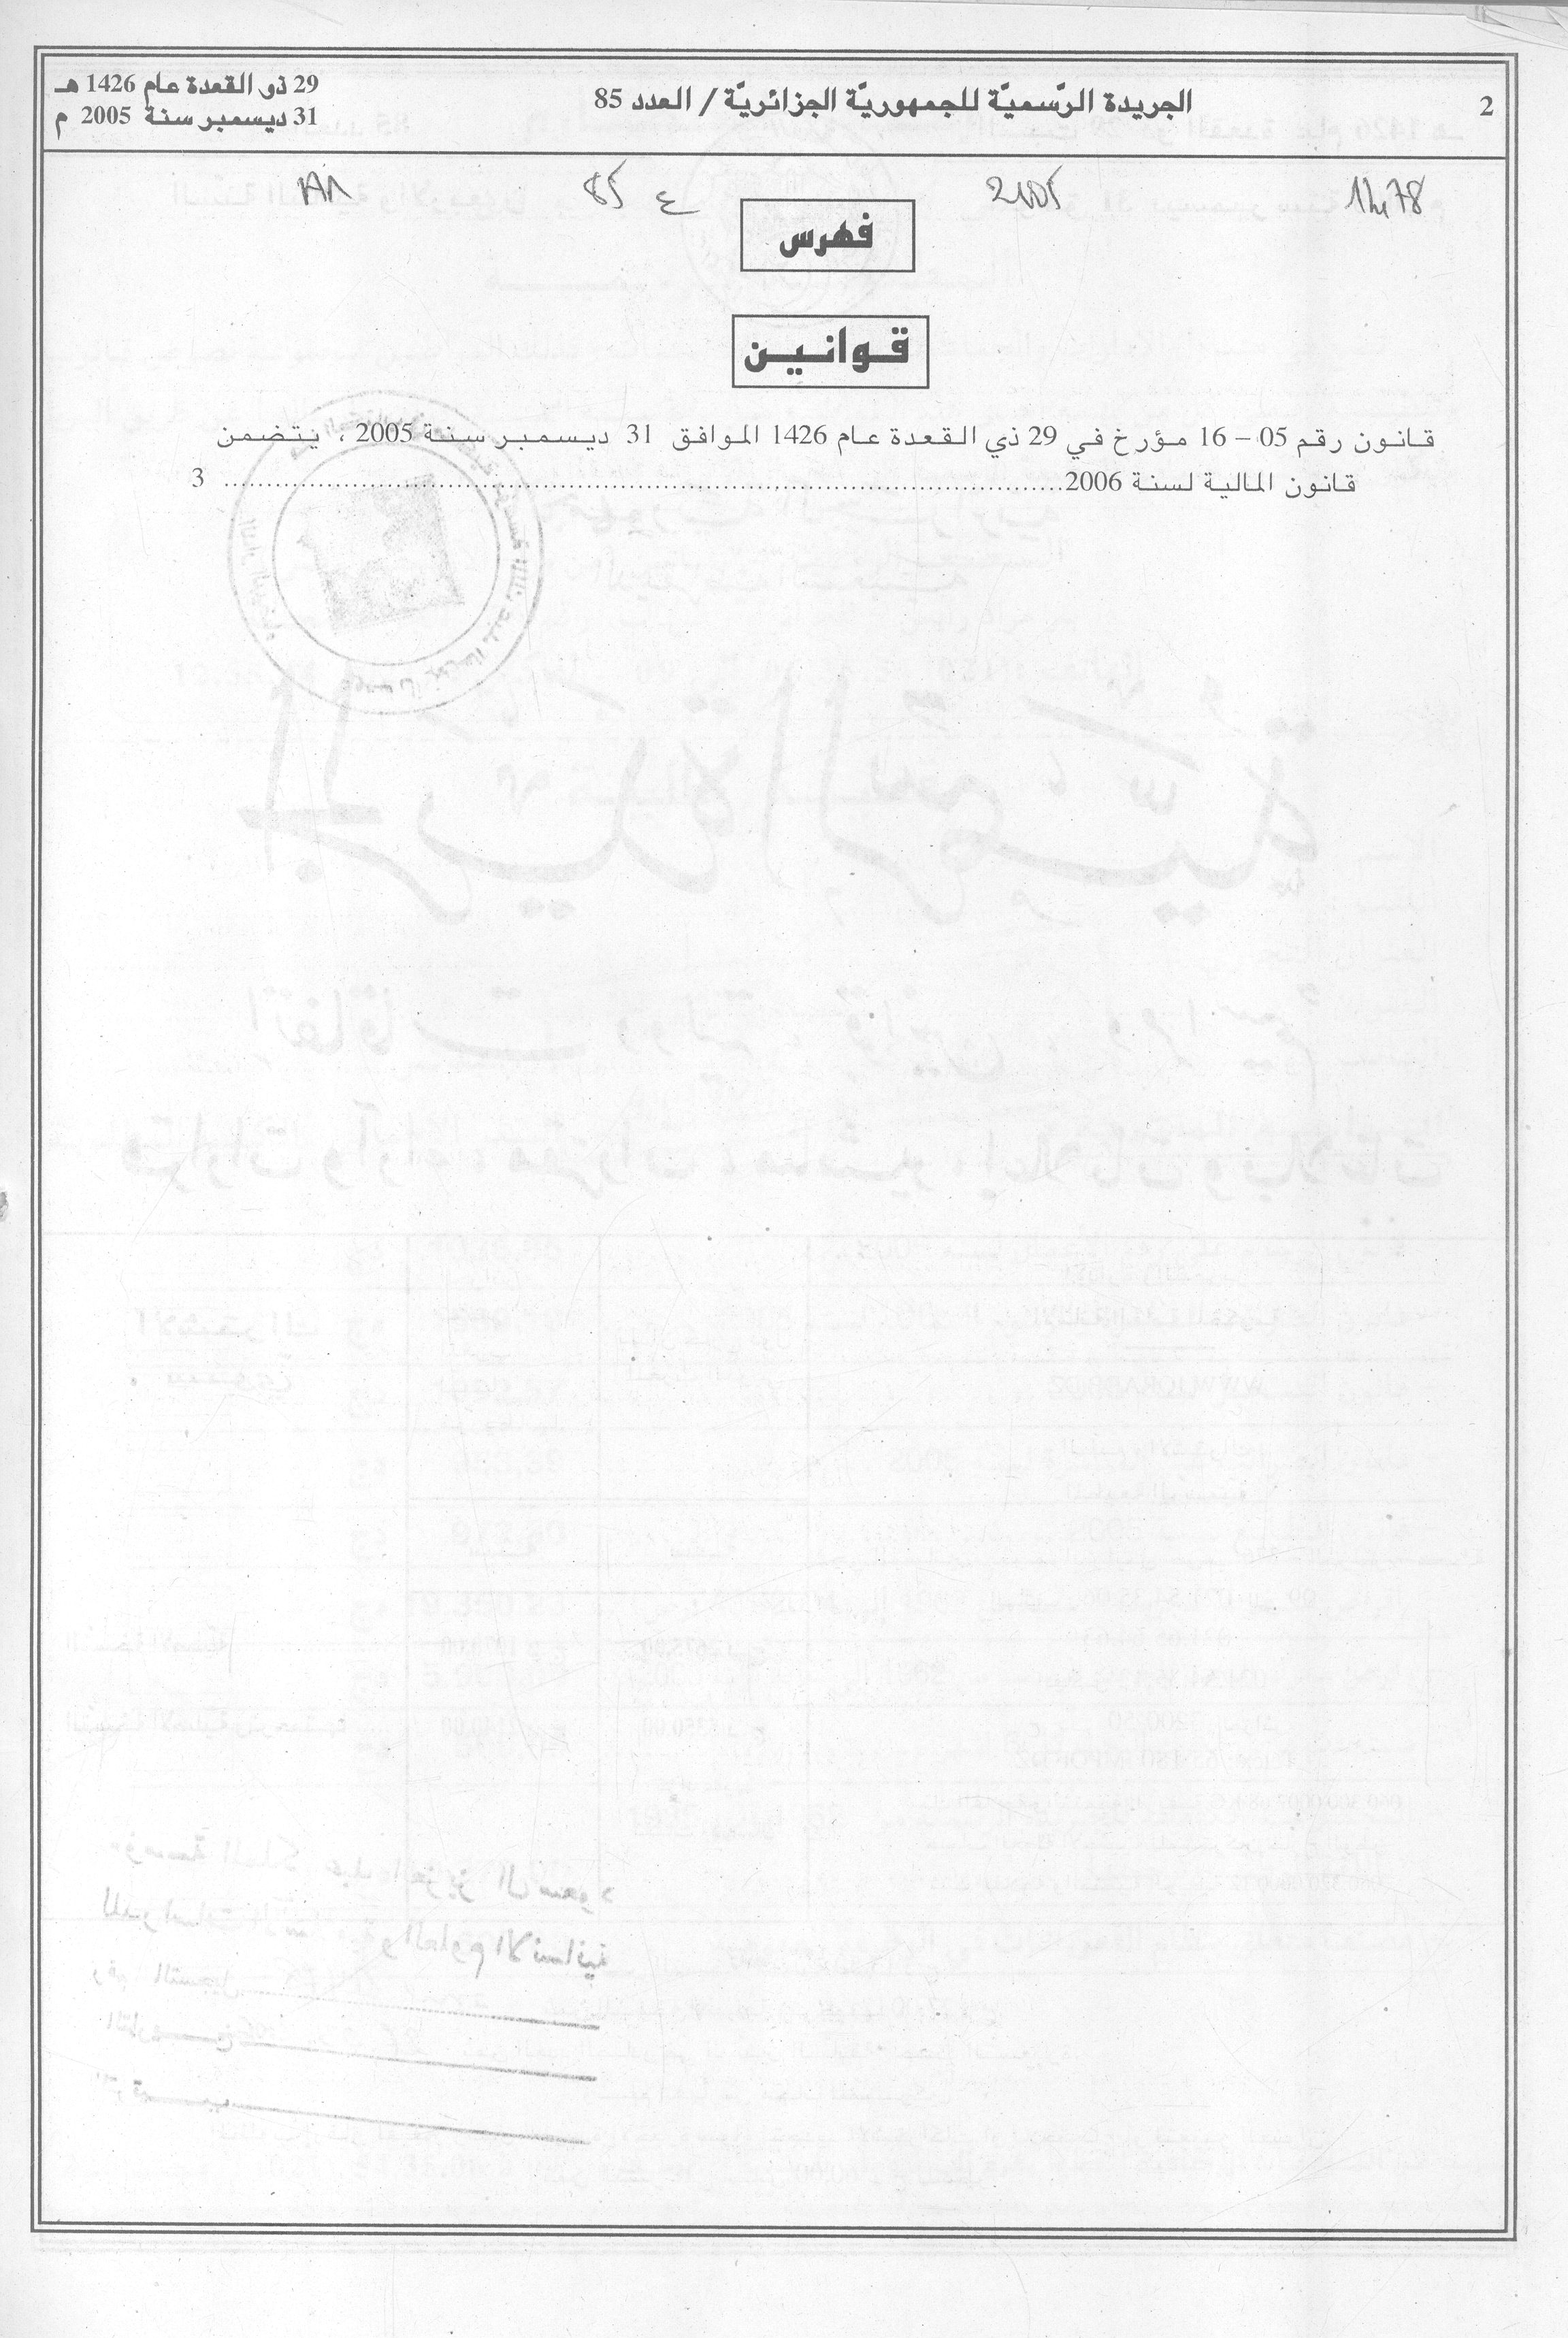 2
الجريدة الرّسميّة للجمهوريّة الجزائريّة / العدد 85
29 ذو القعدة عام 1426 هـ
31 ديسمبر سنة 2005 م
2005 ع 85
فهرس
قوانين
قانون رقم 05 – 16 مؤرخ في 29 ذي القعدة عام 1426 الموافق 31 ديسمبر سنة 2005 ، يتضمن
قانون المالية لسنة 2006........................................................................................ 3